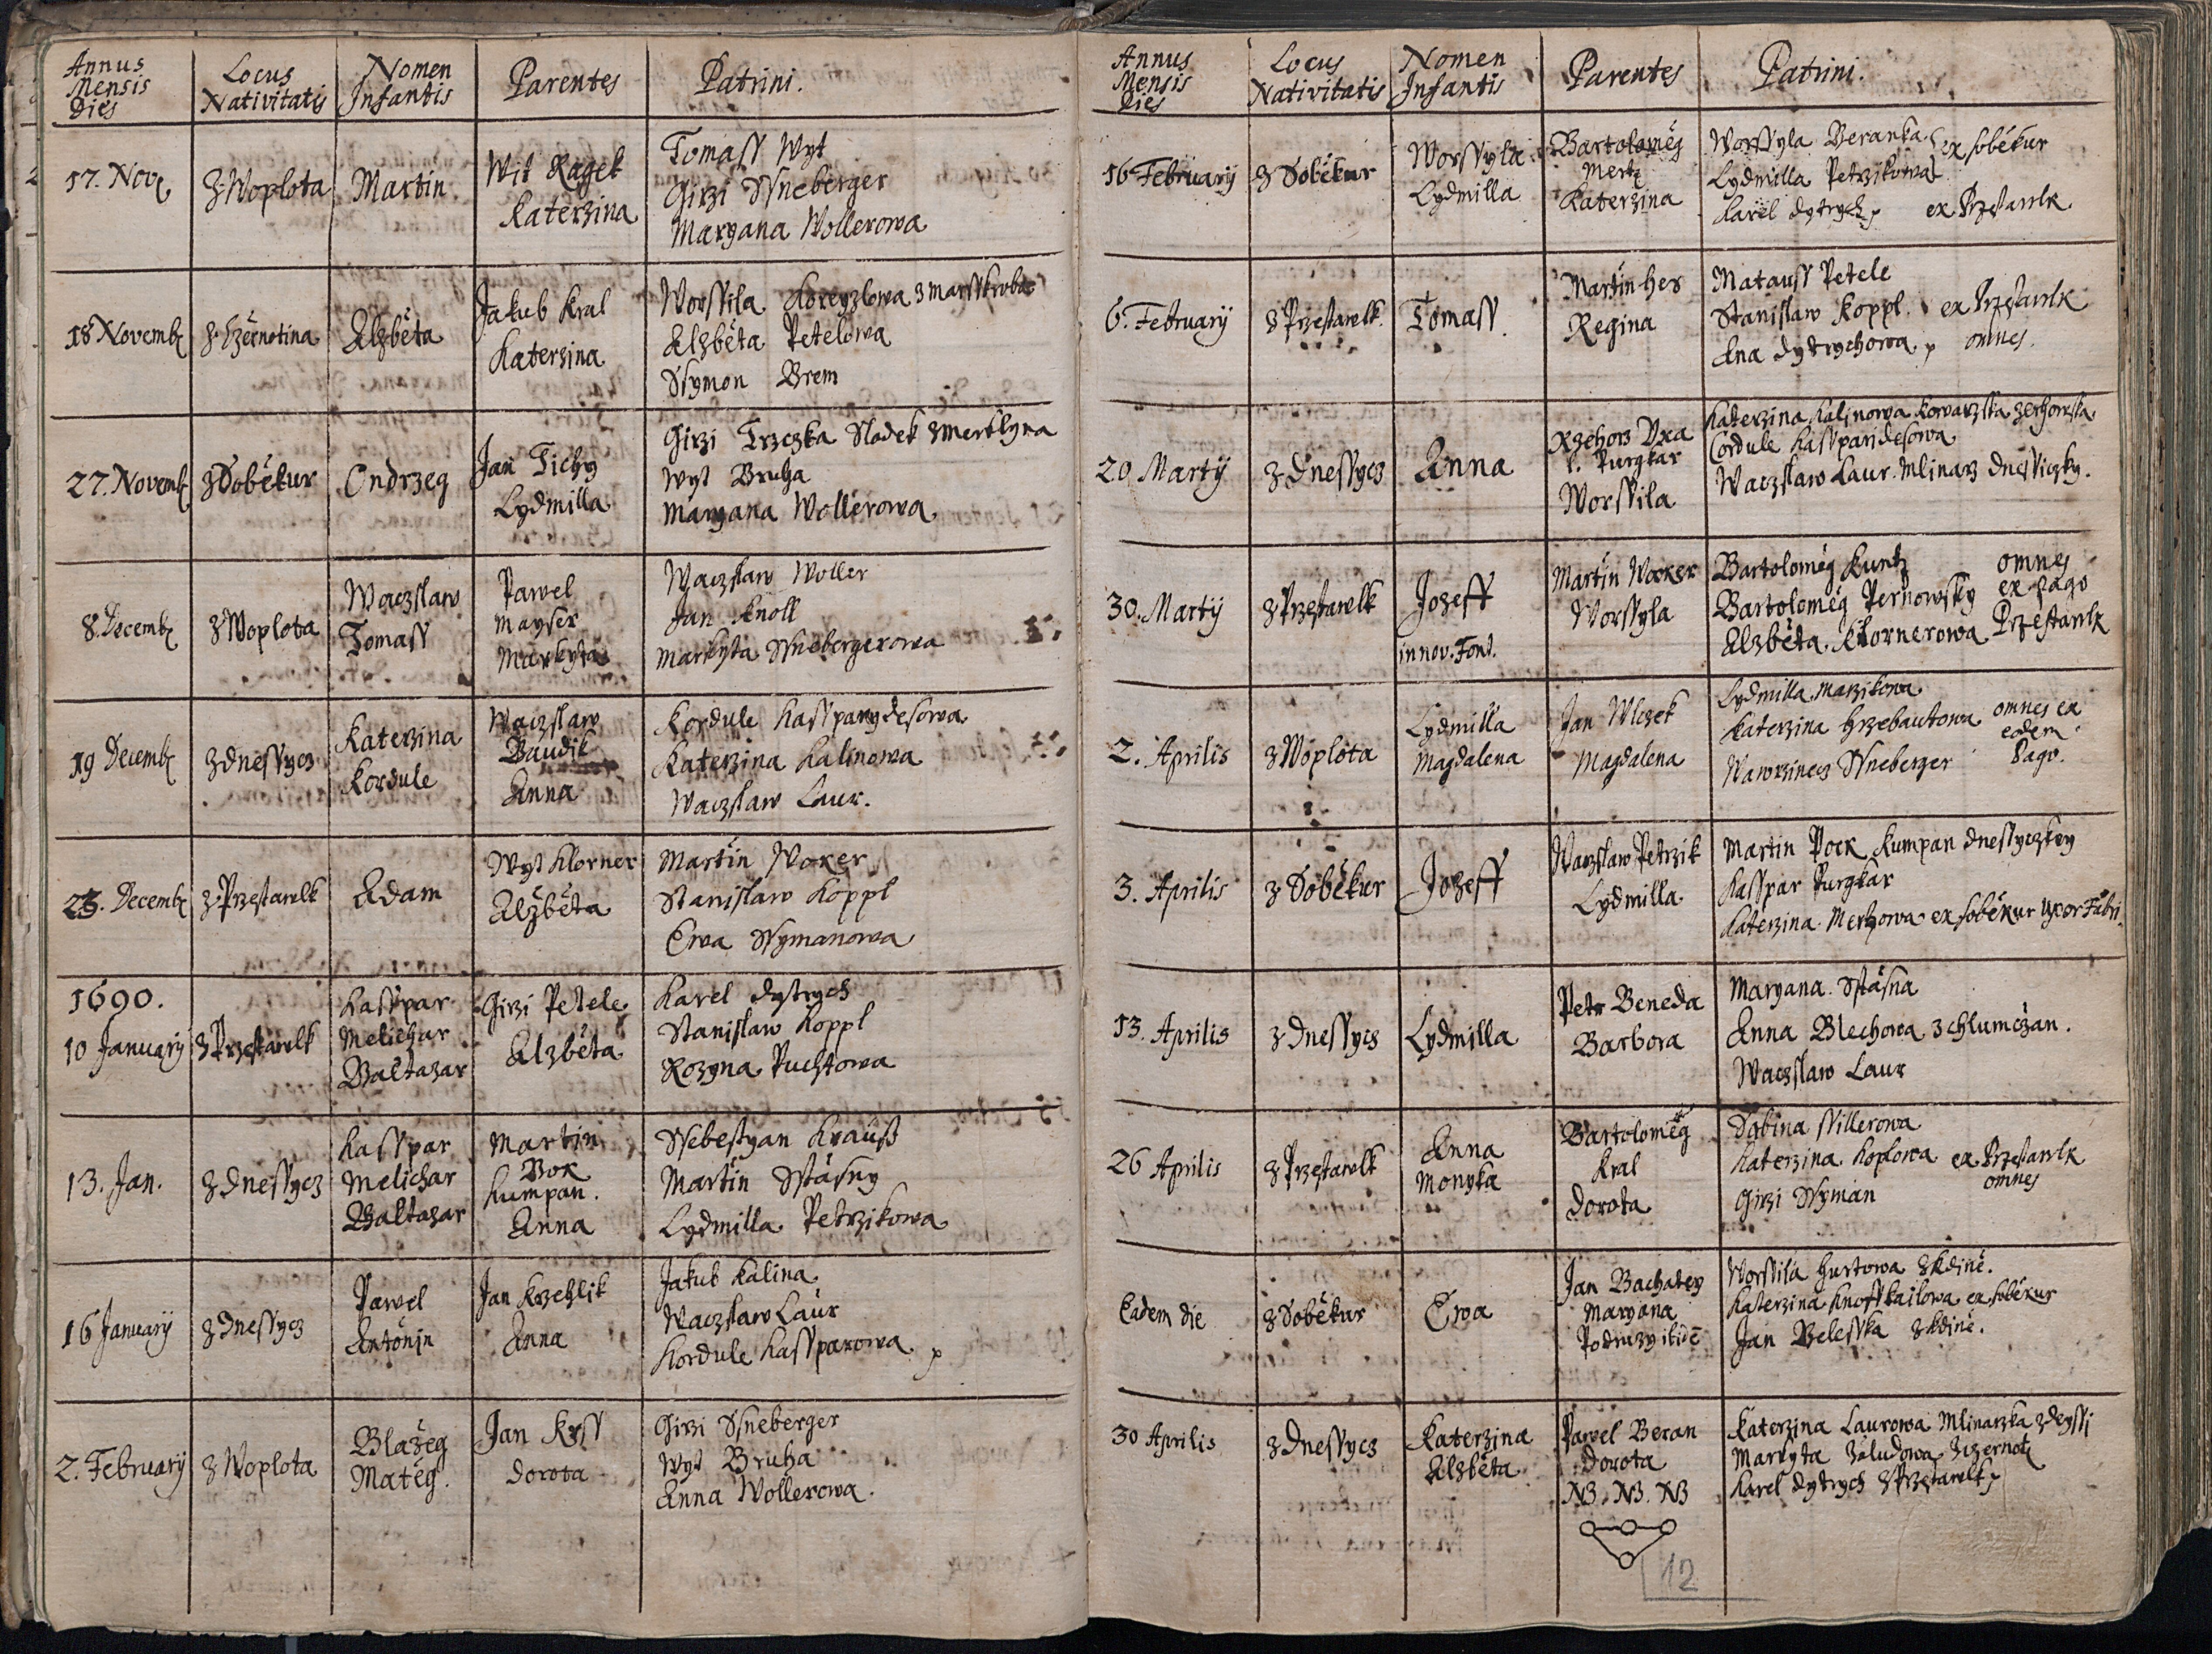 Annus Mensis Dies | Locus Nativitatis | Nomen Infantis | Parentes | Patrini.
17. Nov | z Woplota | Martin | Wit Ragek Katerzina | Tomass Wyt
Girzi Ssneberger
Maryana Wollerowa
18 Novemb | z Czernotina | Alzběta | Jakub Kral Katerzina | Worssila z Marsskrob
Alzběta Petelowa
Ssymon Brem
27. Novemb | z Soběkur | Ondrzeg | Jan Tichy Lydmilla | Girzi Trzczka Sladek z Merklyna
Wyt Bruha
Maryana Wollerowa
8. Decemb | z Woplota | Waczslaw Tomass | Pawel Mayser Markyta | Waczslaw Woller
Jan Knoll
Markyta Ssnebergerowa
19 Decemb | z Dnessycz | Katerzina Kordule | Waczslaw Baudik Anna | Kordule Kassparydesowa
Katerzina Kalinowa
Waczslaw Laur.
23. Decemb | z Przestawlk | Adam | Wyt Klorner Alžběta | Martin Woxer
Stanislaw Koppl
Ewa Ssymanowa
1690.
10 January | z Przestawlk | Kasspar Melichar Baltazar | Girzi Petele Alzběta | Karel Dytrych
Stanislaw Koppl
Rozyna Puchtowa
13. Jan. | z Dnessycz | Kasspar Melichar Baltazar | Martin Bok Kumpan. Anna | Ssebestyan Krauß
Martin Sstasny
Lydmilla Petrzikowa
16 January | z Dnessycz | Pawel Antonin | Jan Krzehlik Anna | Jakub Kalina
Waczslaw Laur
Kordule Kassparowa
2. February | z Woplota | Blažeg Matěg. | Jan Krss Dorota | Girzi Ssneberger
Wyt Bruha
Anna Wollerowa.
Annus Mensis Dies | Locus Nativitatis | Nomen Infantis | Parentes | Patrini.
16 February | z Soběkur | Worssyla Lydmilla | Bartoloměg Mertz Katerzina | Worssyla Beranka ex Soběkur
Lydmilla Petrzikowa
Karel Dytrych ex Przestawlk
6. February | z Przestawlk | Tomass | Martin Hes Regina | Matauss Petele
Stanislaw Koppl. ex Przestawlk
Ana Dytrychowa omnes.
20 Martij | z Dnessycz | Anna | Rzehorz Uxa Purgkar Worssila | Katerzina Kalinowa Kowarzka
Cordule Kassparidesowa
Waczslaw Laur. Mlinarz Dnessiczky.
30. Martij | z Przestawlk | Jozeff in nov. Font. | Martin Worssyla | Bartoloměg Kuntz omnes
Bartoloměg Pernowsky ex Pago
Alzběta Klornerowa Przestawlk
2. Aprilis | z Woplota | Lydmilla Magdalena | Jan Wlczek Magdalena | Lydmilla Marzikowa
Katerzina Hrzebautowa omnes ex
Wawrzinecz Ssneberger eodem Pago.
3. Aprilis | z Soběkur | Jozeff | Waczslaw Petrzik Lydmilla | Martin Pock Kumpan Dnessyczkey
Kasspar Purgkar
Katerzina Mertzowa ex Soběkur Uxor Fabri
13. Aprilis | z Dnessycz | Lydmilla | Petr Beneda Barbora | Maryana Sstasna
Anna Blechowa z Chlumczan.
Waczslaw Laur
26 Aprilis | z Przestawlk | Anna Monyka | Bartoloměg Kral Dorota | Sabina Ssillerowa
Katerzina Koplowa ex Przestawlk
Girzi Ssyman omnes
Eadem die | z Soběkur | Ewa | Jan Bachatey Maryana | Worssila Hurtowa z Kdině.
Katerzina ex Soběkur
Jan Belesska z Kdině.
30 Aprilis | z Dnessycz | Katerzina Alzběta | Pawel Beran Dorota NB. NB. NB | Katerzina Laurowa Mlinarzka
Markyta Zaludowa z Czernot
Karel Dytrych z Przestawlk
12